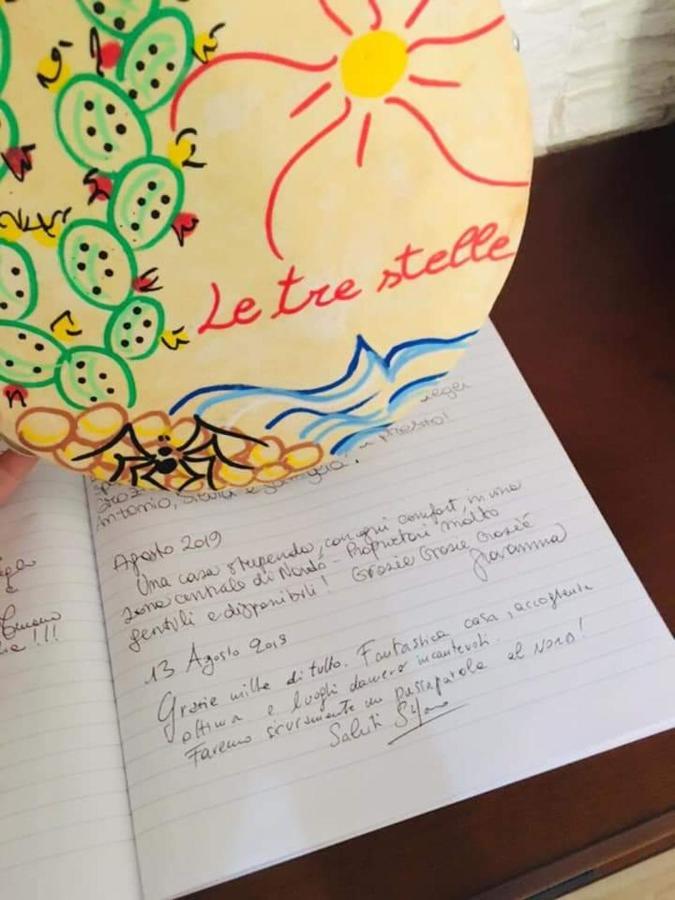 Le tre stelle
presto!
Antonio, Silvia e
Agosto 2019
Una casa stupenda, con ogni comfort, in una
zona centrale di Nardò - Proprietari molto
gentili e disponibili! Grazie Grazie Grazie
Giovanna
13 Agosto 2019
Grazie mille di tutto. Fantastica casa, accoglienza
ottima e luoghi davvero incantevoli.
Faremo sicuramente un passaparola al NORD!
Saluti
!!!